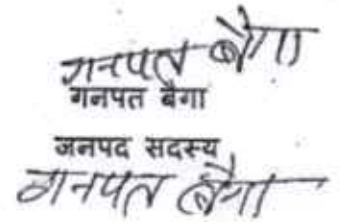 गनपत बैगा
गनपत बैगा
जनपद सदस्य
गनपत बैगा